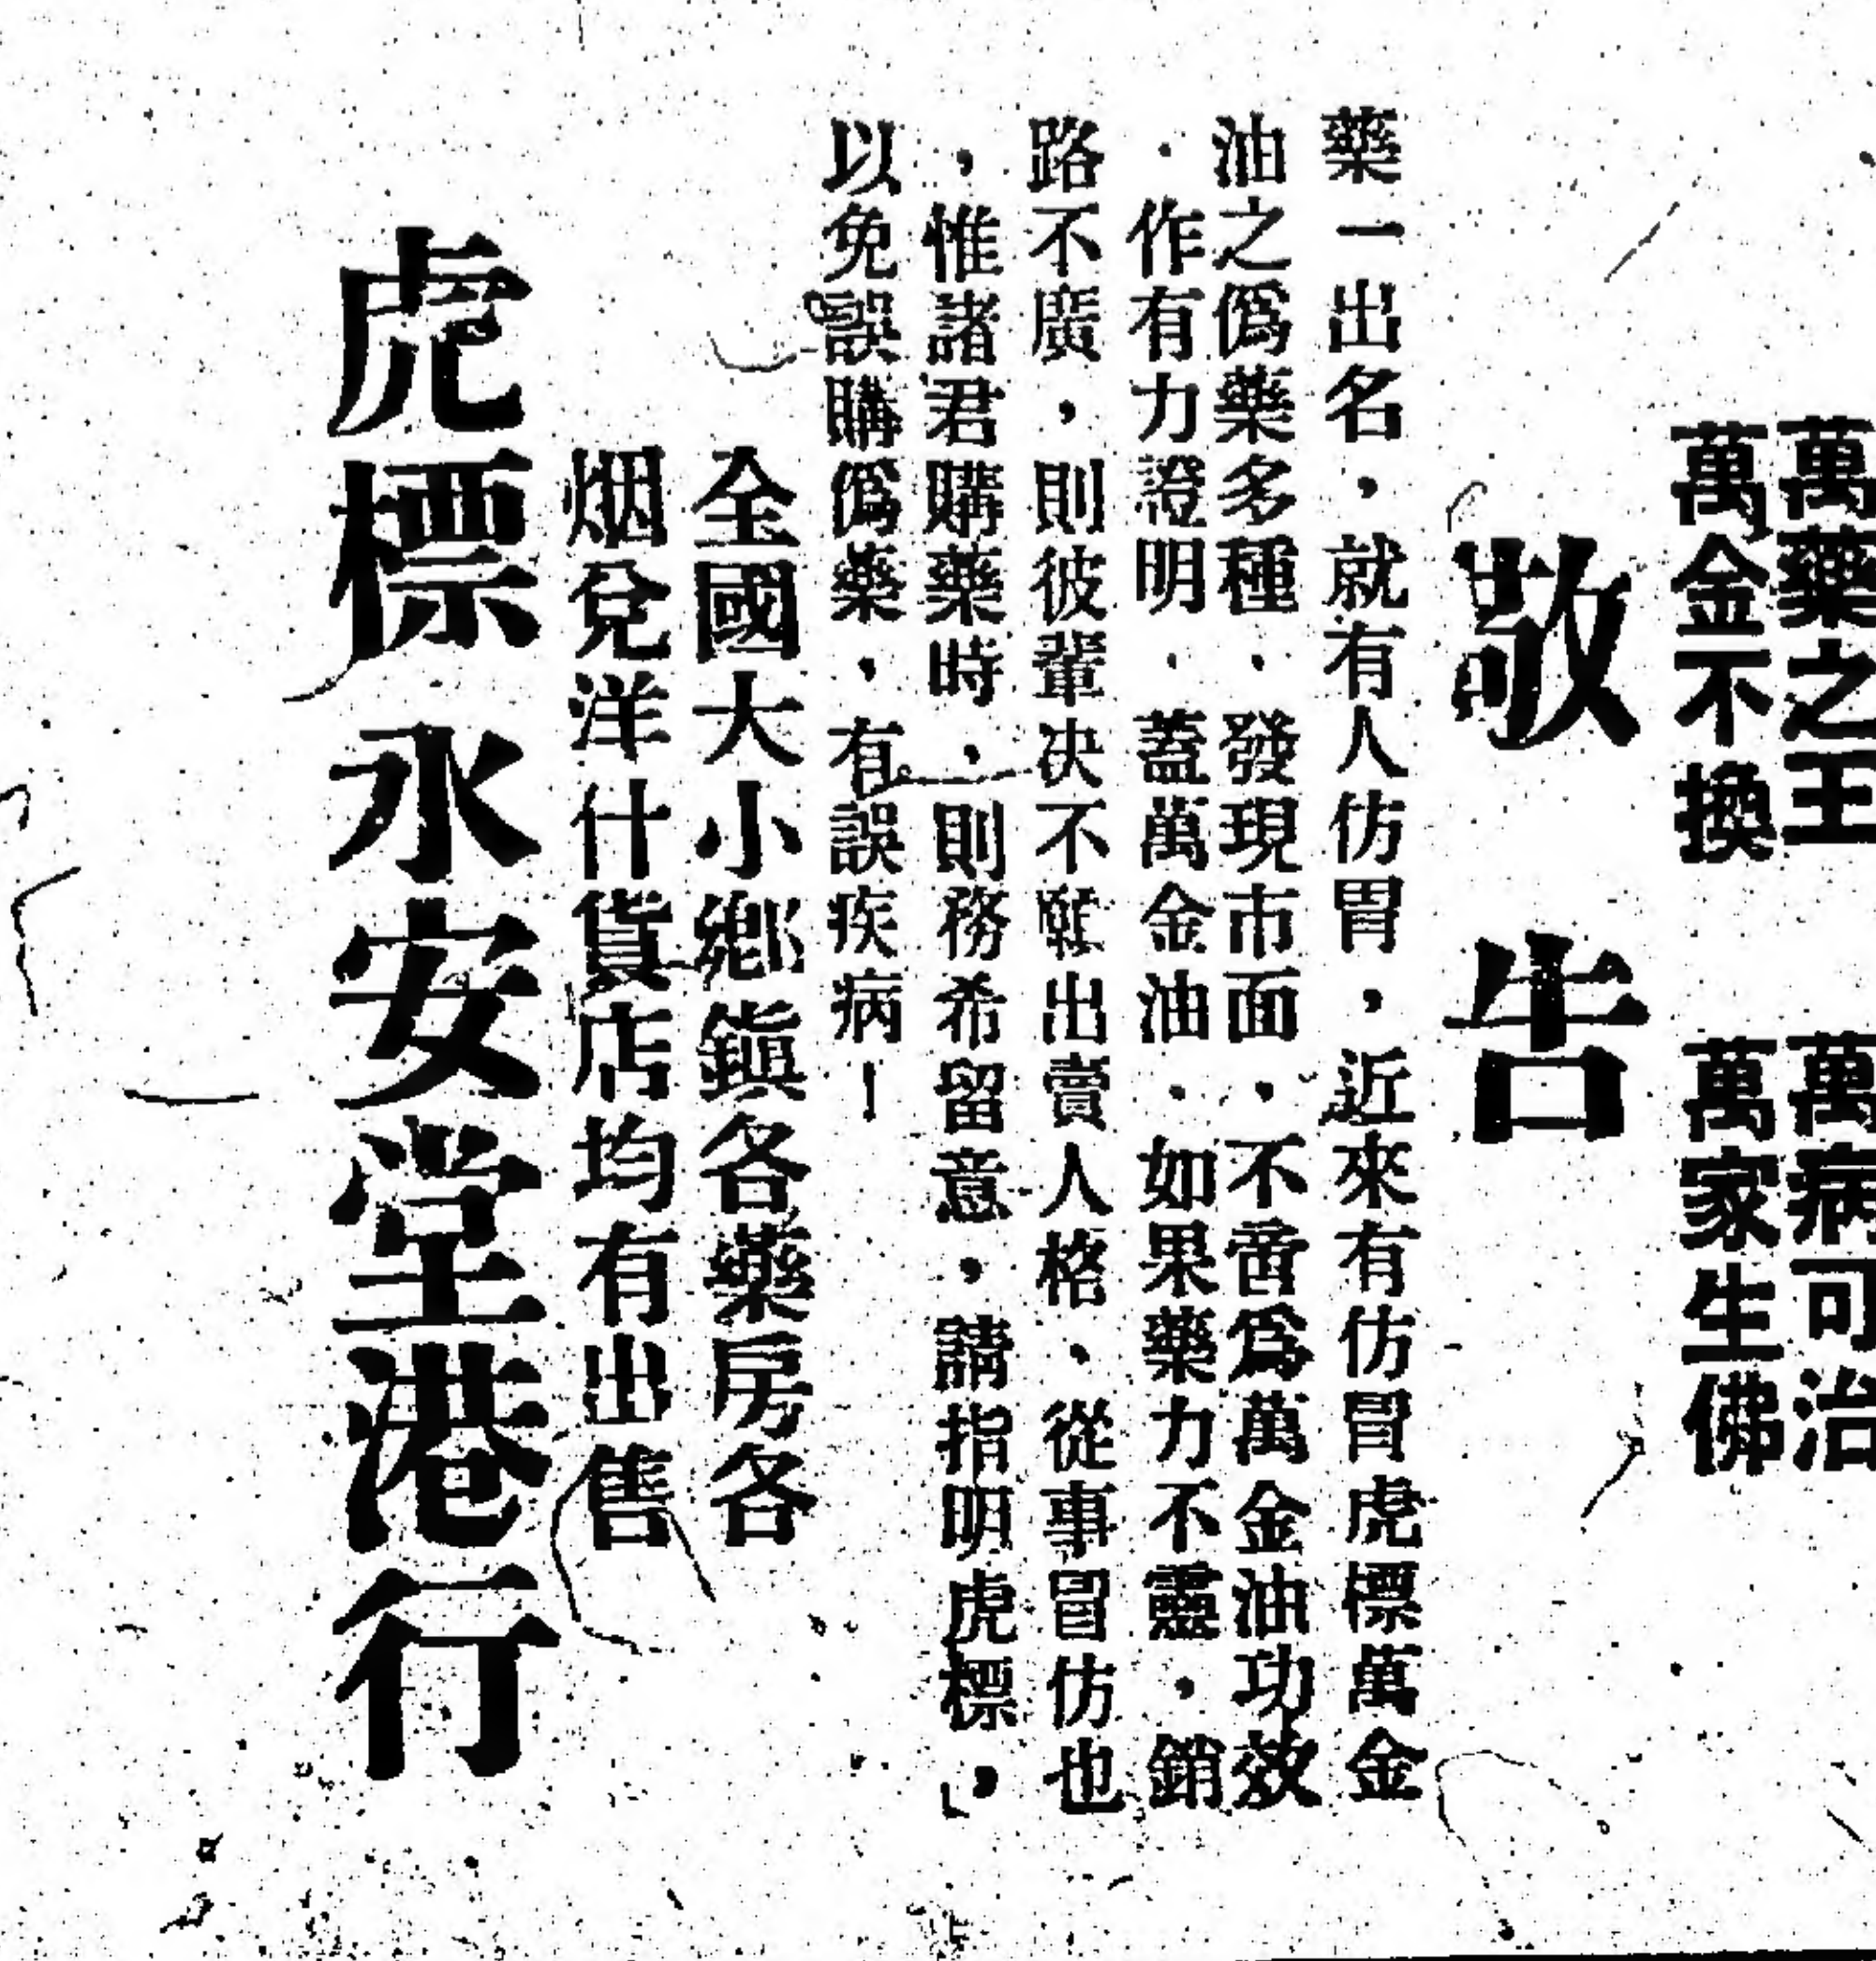 萬藥之王　萬病可治
萬金不換　萬家生佛
敬告
藥一出名，就有人仿冒，近來有仿冒虎標萬金
油之僞藥多種．發現市面．不啻爲萬金油功效
．作有力證明．蓋萬金油．如果藥力不靈．銷
路不廣，則彼輩决不願出賣人格、從事冒仿也
，惟諸君購藥時、則務希留意，請指明虎標，
以免誤購僞藥，有誤疾病！
全國大小鄉鎮各藥房各
烟兌洋什貨店均有出售
虎標永安堂港行